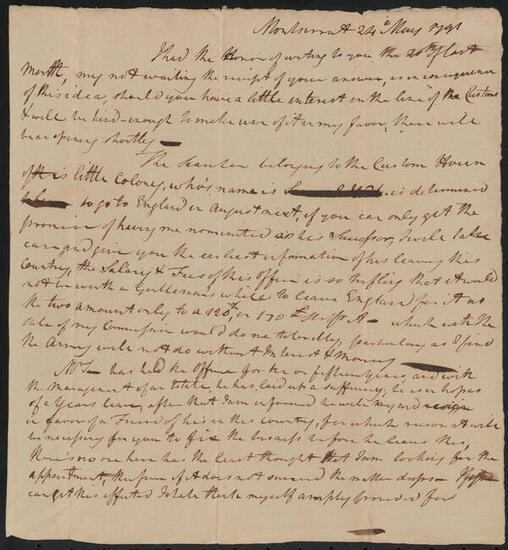 Montserrat 24th May 1791
I had the Honor of writing to you the 20th of last
month, my not waiting the receipt of your answer, is in consequence
of this idea, should you have a little interest in the line of the Customs
& will be kind enough to make use of it in my favor, there will
be an opening shortly
The Searcher belonging to the Custom House in
of this little Colony, who's name is is determined
to go to England in August next, if you can only get the
promise of having me nominated as his Successor, I will take
care and give you the earliest information of his leaving this
Country, the Salary & Fees of this Office is so trifling that it would
not be worth a Gentleman's while to leave England for it as
the two amount only to a 120 or 170 £ Str. P A — which with the
sale of my Commission would do me tolerably, particularly as I find
the Army will not do without Interest & Money
Mr. — has held the Office for ten or fifteen years, and with
the management of an Estate he has, laid up a sufficiency, he is in hopes
of a Years leave, after that I am informed he will
in favor of a Friend of his in this country, for which reason it will
be necessary for you to fix the business before he leaves this,
there is no one here has the least thought that I am looking for the
appointment, therefore if it does not succeed the matter drops — If you
can get this effected I shall think myself amply provided for